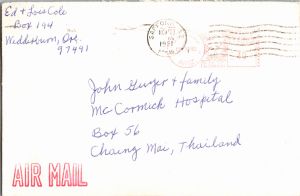 Ed & Lois Cole
Box 194
Wedderburn, Ore.
97491
John Guyer & family
McCormick Hospital
Box 56
Chaing Mai, Thailand
AIR MAIL